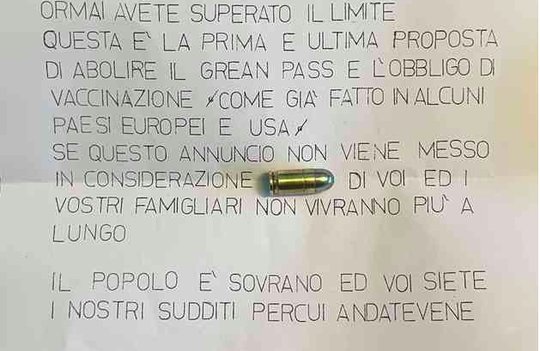 ORMAI AVETE SUPERATO IL LIMITE
QUESTA E' LA PRIMA E ULTIMA PROPOSTA
DI ABOLIRE IL GREAN PASS E L'OBBLIGO DI
VACCINAZIONE /COME GIA' FATTO IN ALCUNI
PAESI EUROPEI E USA/
SE QUESTO ANNUNCIO NON VIENE MESSO
IN CONSIDERAZIONE DI VOI ED I
VOSTRI FAMIGLIARI NON VIVRANNO PIU' A
LUNGO
IL POPOLO E' SOVRANO ED VOI SIETE
I NOSTRI SUDDITI PERCUI ANDATEVENE